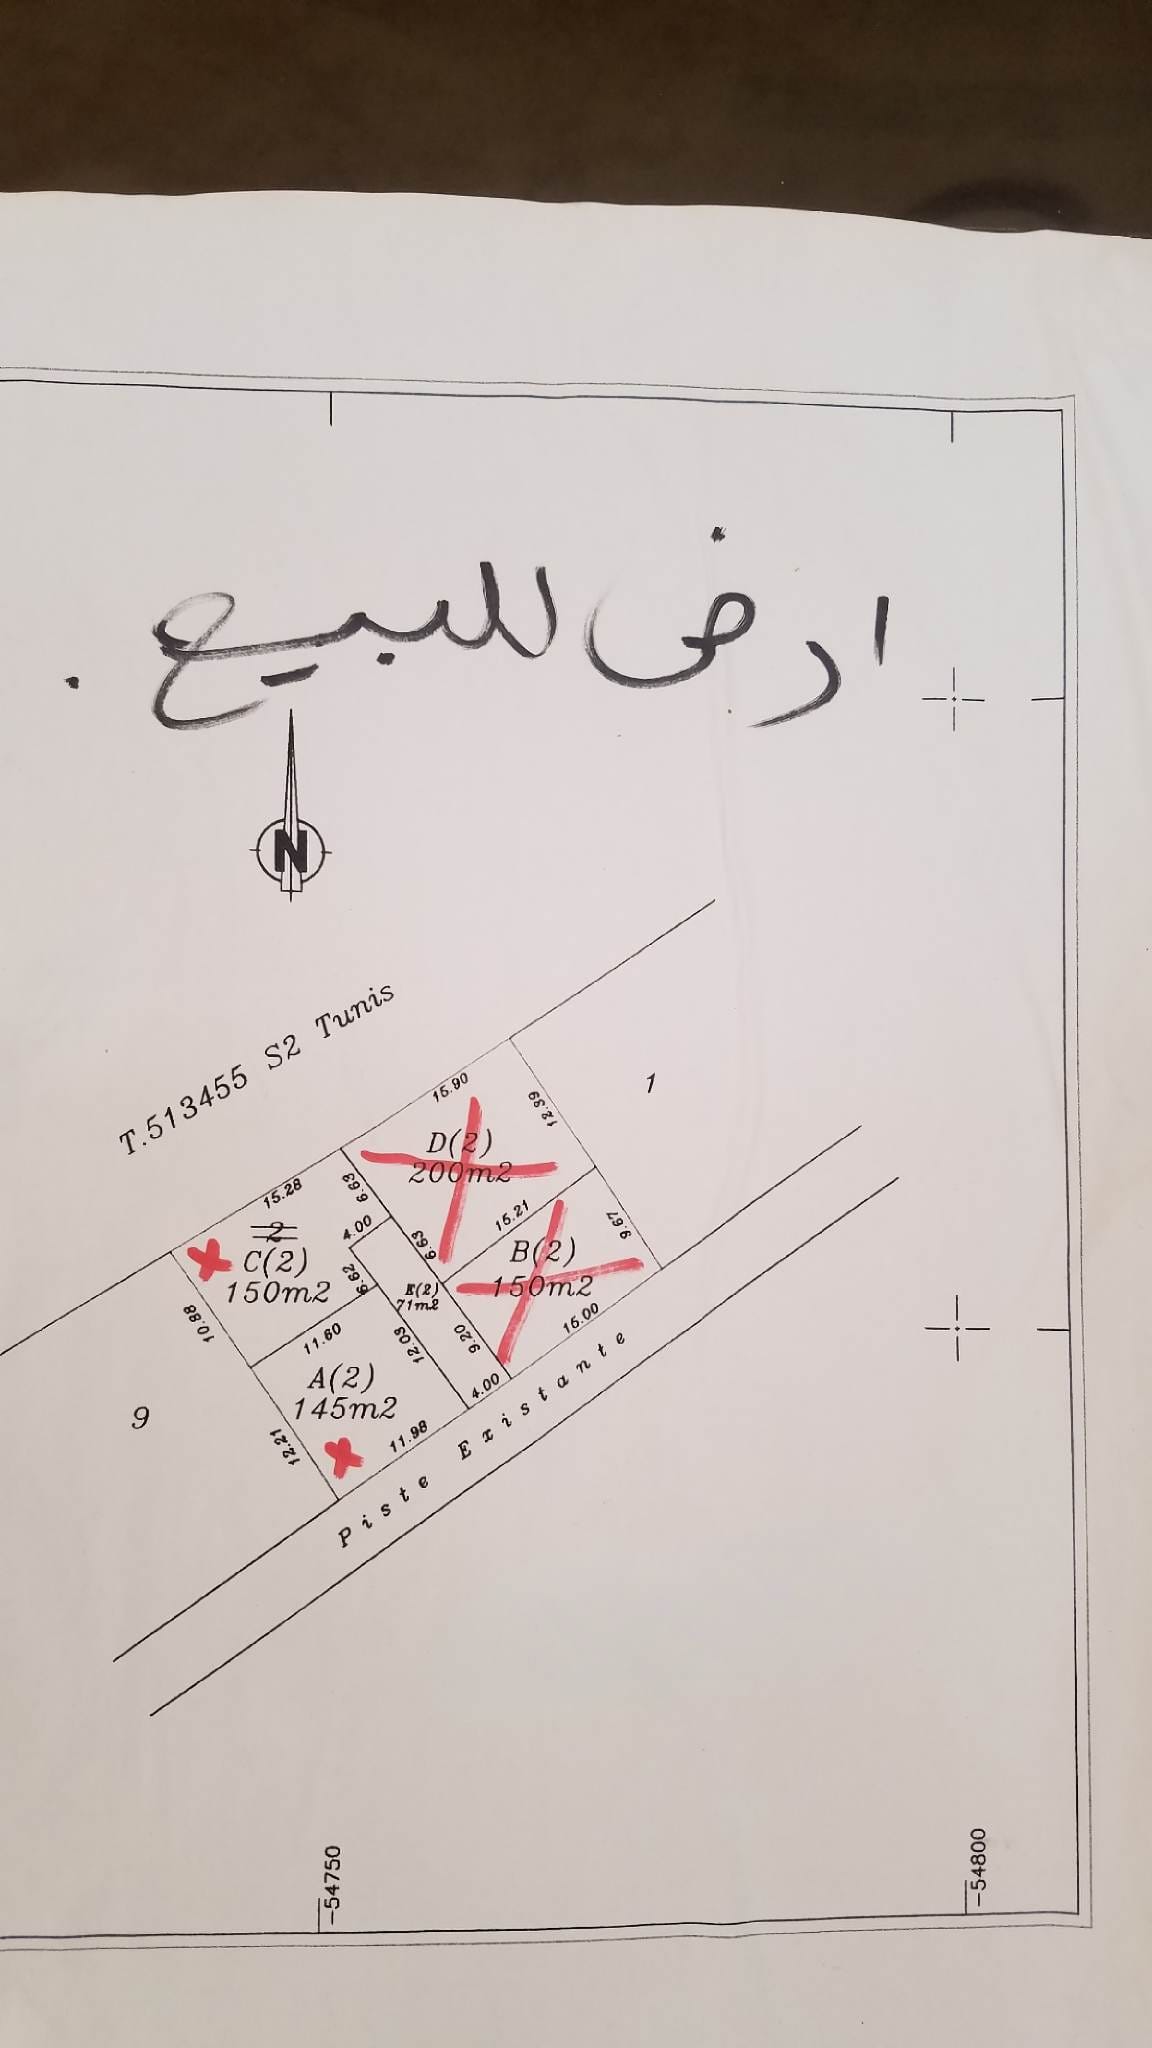 ارض للبيع .
N
T.513455 S2 Tunis
15.90
12.39
1
D(2)
200m2
6.63
6.63
15.28
2
C(2)
150m2
4.00
6.62
10.88
15.21
9.67
B(2)
150m2
15.00
E(2)
71m2
9.20
12.03
11.60
A(2)
145m2
4.00
11.98
12.21
9
Piste Existante
-54750
-54800